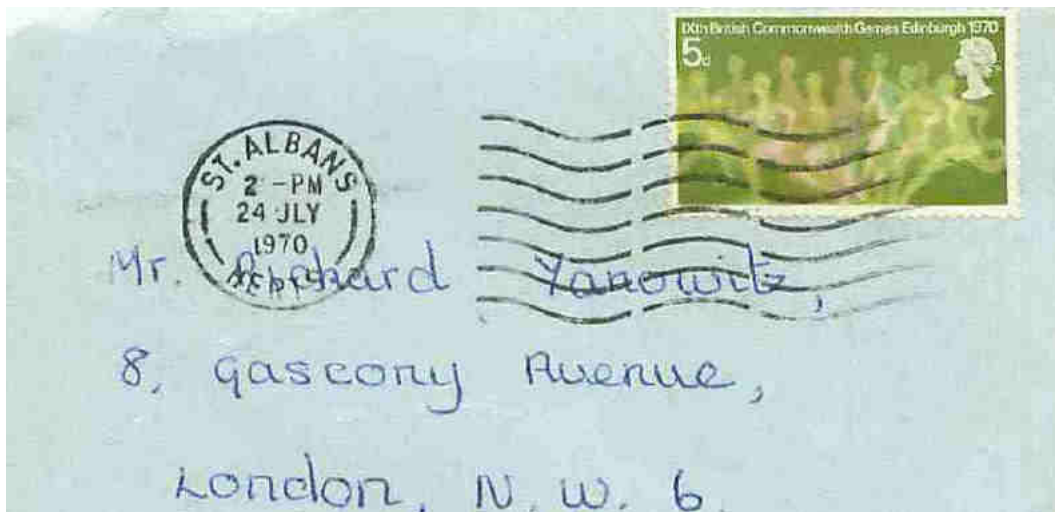 IXth British Commonwealth Games Edinburgh 1970
5d
ST. ALBANS
2 -PM
24 JLY
1970
HERTS
Mr. Richard Yanowitz,
8, Gascony Avenue,
London, N. W. 6.